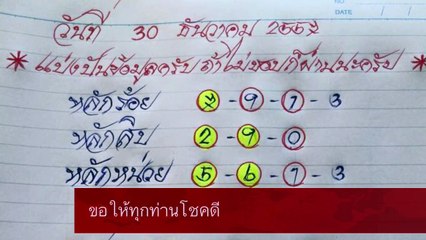 NO.
DATE
วันที่ 30 ธันวาคม 2557
* แบ่งปันข้อมูลครับ ถ้าไม่ชอบก็ผ่านนะครับ *
หลักร้อย - 9 - 1 - 3
หลักสิบ 2 - 9 - 0
หลักหน่วย 5 - 6 - 1 - 3
ขอให้ทุกท่านโชคดี